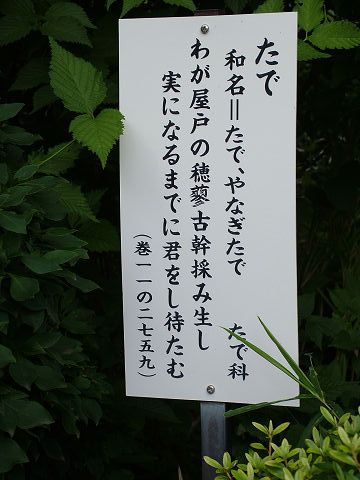 たで
和名＝たで、やなぎたで　たで科
わが屋戸の穂蓼古幹採み生し
実になるまでに君をし待たむ
（巻一一の二七五九）